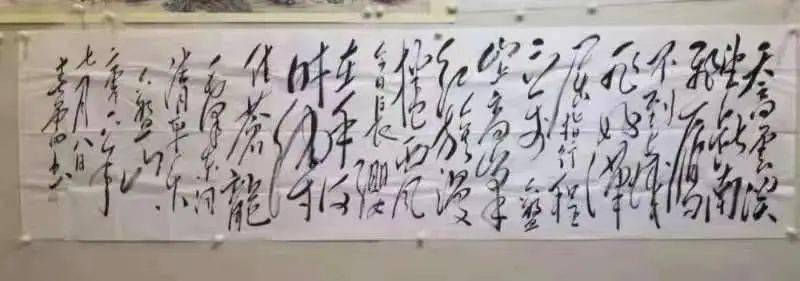 天高雲淡
望断南
飛雁
不到長城
非好漢
屈指行程
二万六盤
山上高峰
红旗漫
捲西风
今日長纓
在手何
时缚
住蒼龍
毛澤东词
清平乐
六盤山
七月八日